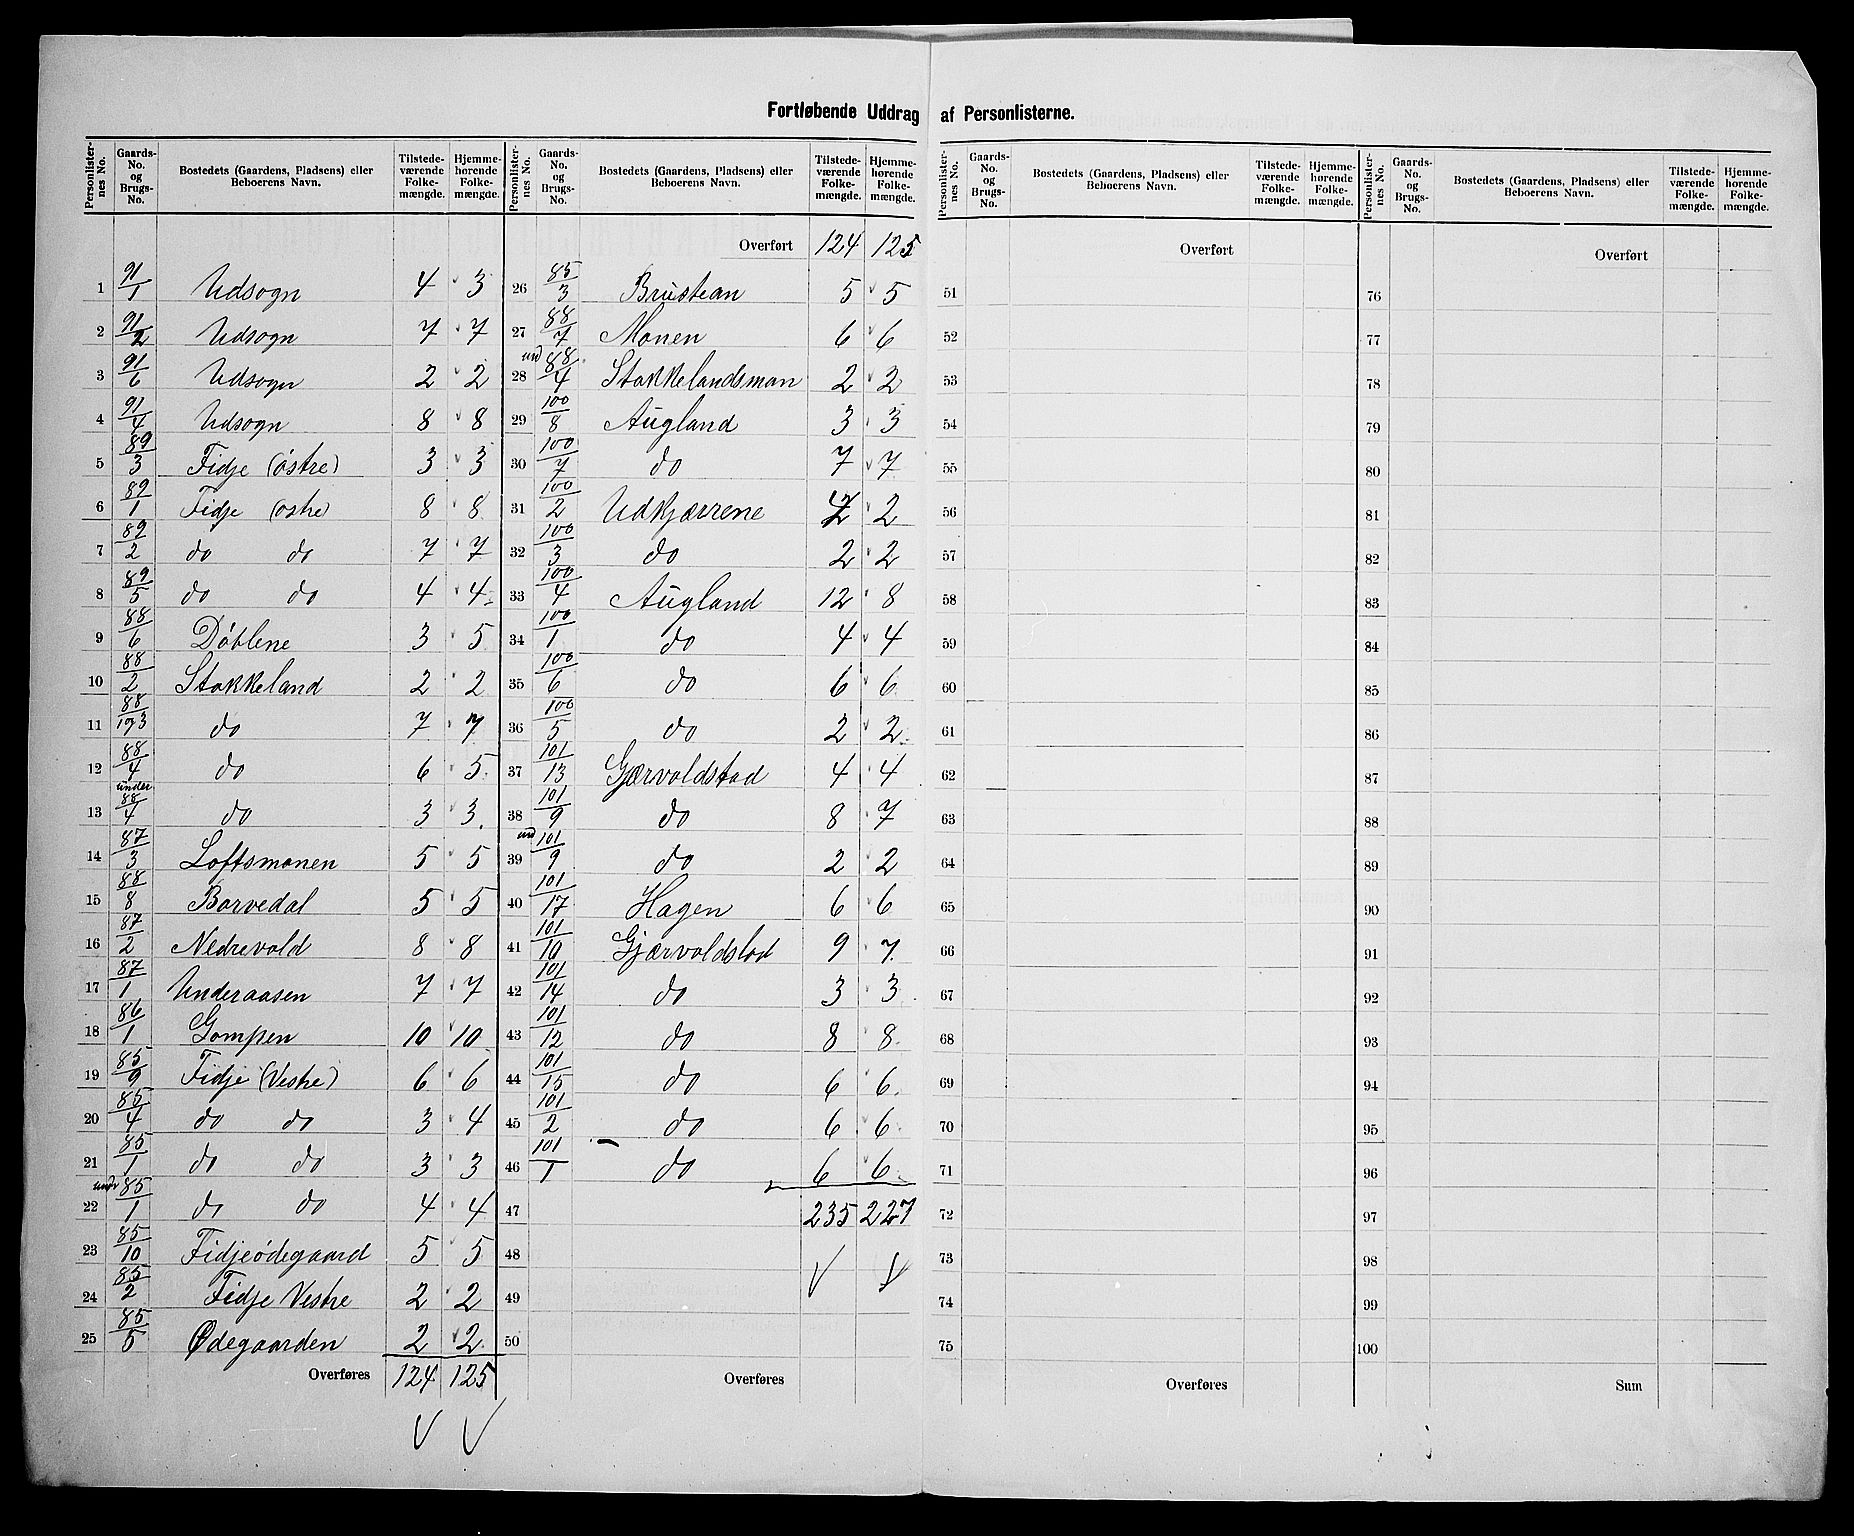 Fortløbende Uddrag af Personlisterne.
Personlister-nes No. | Gaards-No. og Brugs-No. | Bostedets (Gaardens, Pladsens) eller Beboerens Navn. | Tilstede-værende Folke-mængde. | Hjemme-hørende Folke-mængde.
1 91/1 Udsogn 4 3
2 91/2 Udsogn 7 7
3 91/6 Udsogn 2 2
4 91/4 Udsogn 8 8
5 89/3 Fidje (østre) 3 3
6 89/1 Fidje (østre) 8 8
7 89/2 do do 7 7
8 89/5 do do 4 4
9 88/6 Døblene 3 5
10 88/2 Stakkeland 2 2
11 88/1og3 do 7 7
12 88/4 do 6 5
13 under 88/4 do 3 3
14 87/3 Loftsmonen 5 5
15 88/8 Barvedal 5 5
16 87/2 Nedrevold 8 8
17 87/1 Underaasen 7 7
18 86/1 Gompen 10 10
19 85/9 Fidje (Vestre) 6 6
20 85/4 do do 3 4
21 85/1 do do 3 3
22 under 85/1 do do 4 4
23 85/10 Fidjeødegaard 5 5
24 85/2 Fidje Vestre 2 2
25 85/5 Ødegaarden 2 2
Overføres 124 125
Personlister-nes No. | Gaards-No. og Brugs-No. | Bostedets (Gaardens, Pladsens) eller Beboerens Navn. | Tilstede-værende Folke-mængde. | Hjemme-hørende Folke-mængde.
Overført 124 125
26 85/3 Brustean 5 5
27 88/7 Monen 6 6
28 und 88/4 Stakkelandsmon 2 2
29 100/8 Augland 3 3
30 100/7 do 7 7
31 100/2 Udkjærrene 2 2
32 100/3 do 2 2
33 100/4 Augland 12 8
34 100/1 do 4 4
35 100/6 do 6 6
36 100/5 do 2 2
37 101/13 Gjærvoldstad 4 4
38 101/9 do 8 7
39 und 101/9 do 2 2
40 101/17 Hagen 6 6
41 101/10 Gjærvoldstad 9 7
42 101/14 do 3 3
43 101/12 do 8 8
44 101/15 do 6 6
45 101/2 do 6 6
46 101/1 do 6 6
47 235 227
48
49
50
Overføres
Personlister-nes No. | Gaards-No. og Brugs-No. | Bostedets (Gaardens, Pladsens) eller Beboerens Navn. | Tilstede-værende Folke-mængde. | Hjemme-hørende Folke-mængde.
Overført
51
52
53
54
55
56
57
58
59
60
61
62
63
64
65
66
67
68
69
70
71
72
73
74
75
Overføres
Personlister-nes No. | Gaards-No. og Brugs-No. | Bostedets (Gaardens, Pladsens) eller Beboerens Navn. | Tilstede-værende Folke-mængde. | Hjemme-hørende Folke-mængde.
Overført
76
77
78
79
80
81
82
83
84
85
86
87
88
89
90
91
92
93
94
95
96
97
98
99
100
Sum